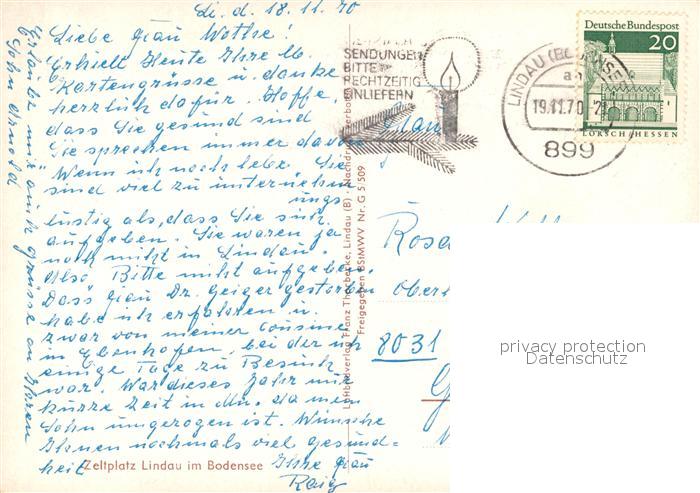 Li. d. 18.11.70
Liebe Frau Wothe!
Erhielt Heute Ihre lb.
Kartengrüsse u. danke
herzlich dafür. Hoffe,
dass Sie gesund sind
Sie sprechen immer davon
Wenn ich noch lebe. Sie
sind viel zu unternehm
ungs
lustig als, dass Sie sich
aufgeben. Sie waren ja
noch nicht in Lindau.
Also Bitte nicht aufgeben.
Dass Frau Dr. Geiger gestorben
habe ich erfahren u.
zwar von meiner Cousine
in Ebenhofen, bei der ich
einige Tage zu Besuch
war. War dieses Jahr nur
kurze Zeit in Mü. da mein
Sohn umgezogen ist. Wünsche
Ihnen nochmals viel Gesund=
heit Ihre Frau
Raig
Erlaube mir auch Grüsse an Ihren
Sohn Arnold
Zeltplatz Lindau im Bodensee
Luftbildverlag Franz Thorbecke, Lindau (B) Nachdruck verboten
Freigegeben BStMWV Nr. G 5/509
SENDUNGEN
BITTE
RECHTZEITIG
EINLIEFERN
LINDAU (BODENSEE)
19.11.70
899
Deutsche Bundespost
20
LORSCH/HESSEN
Frau
Rosa
Ober
8031
privacy protection
Datenschutz